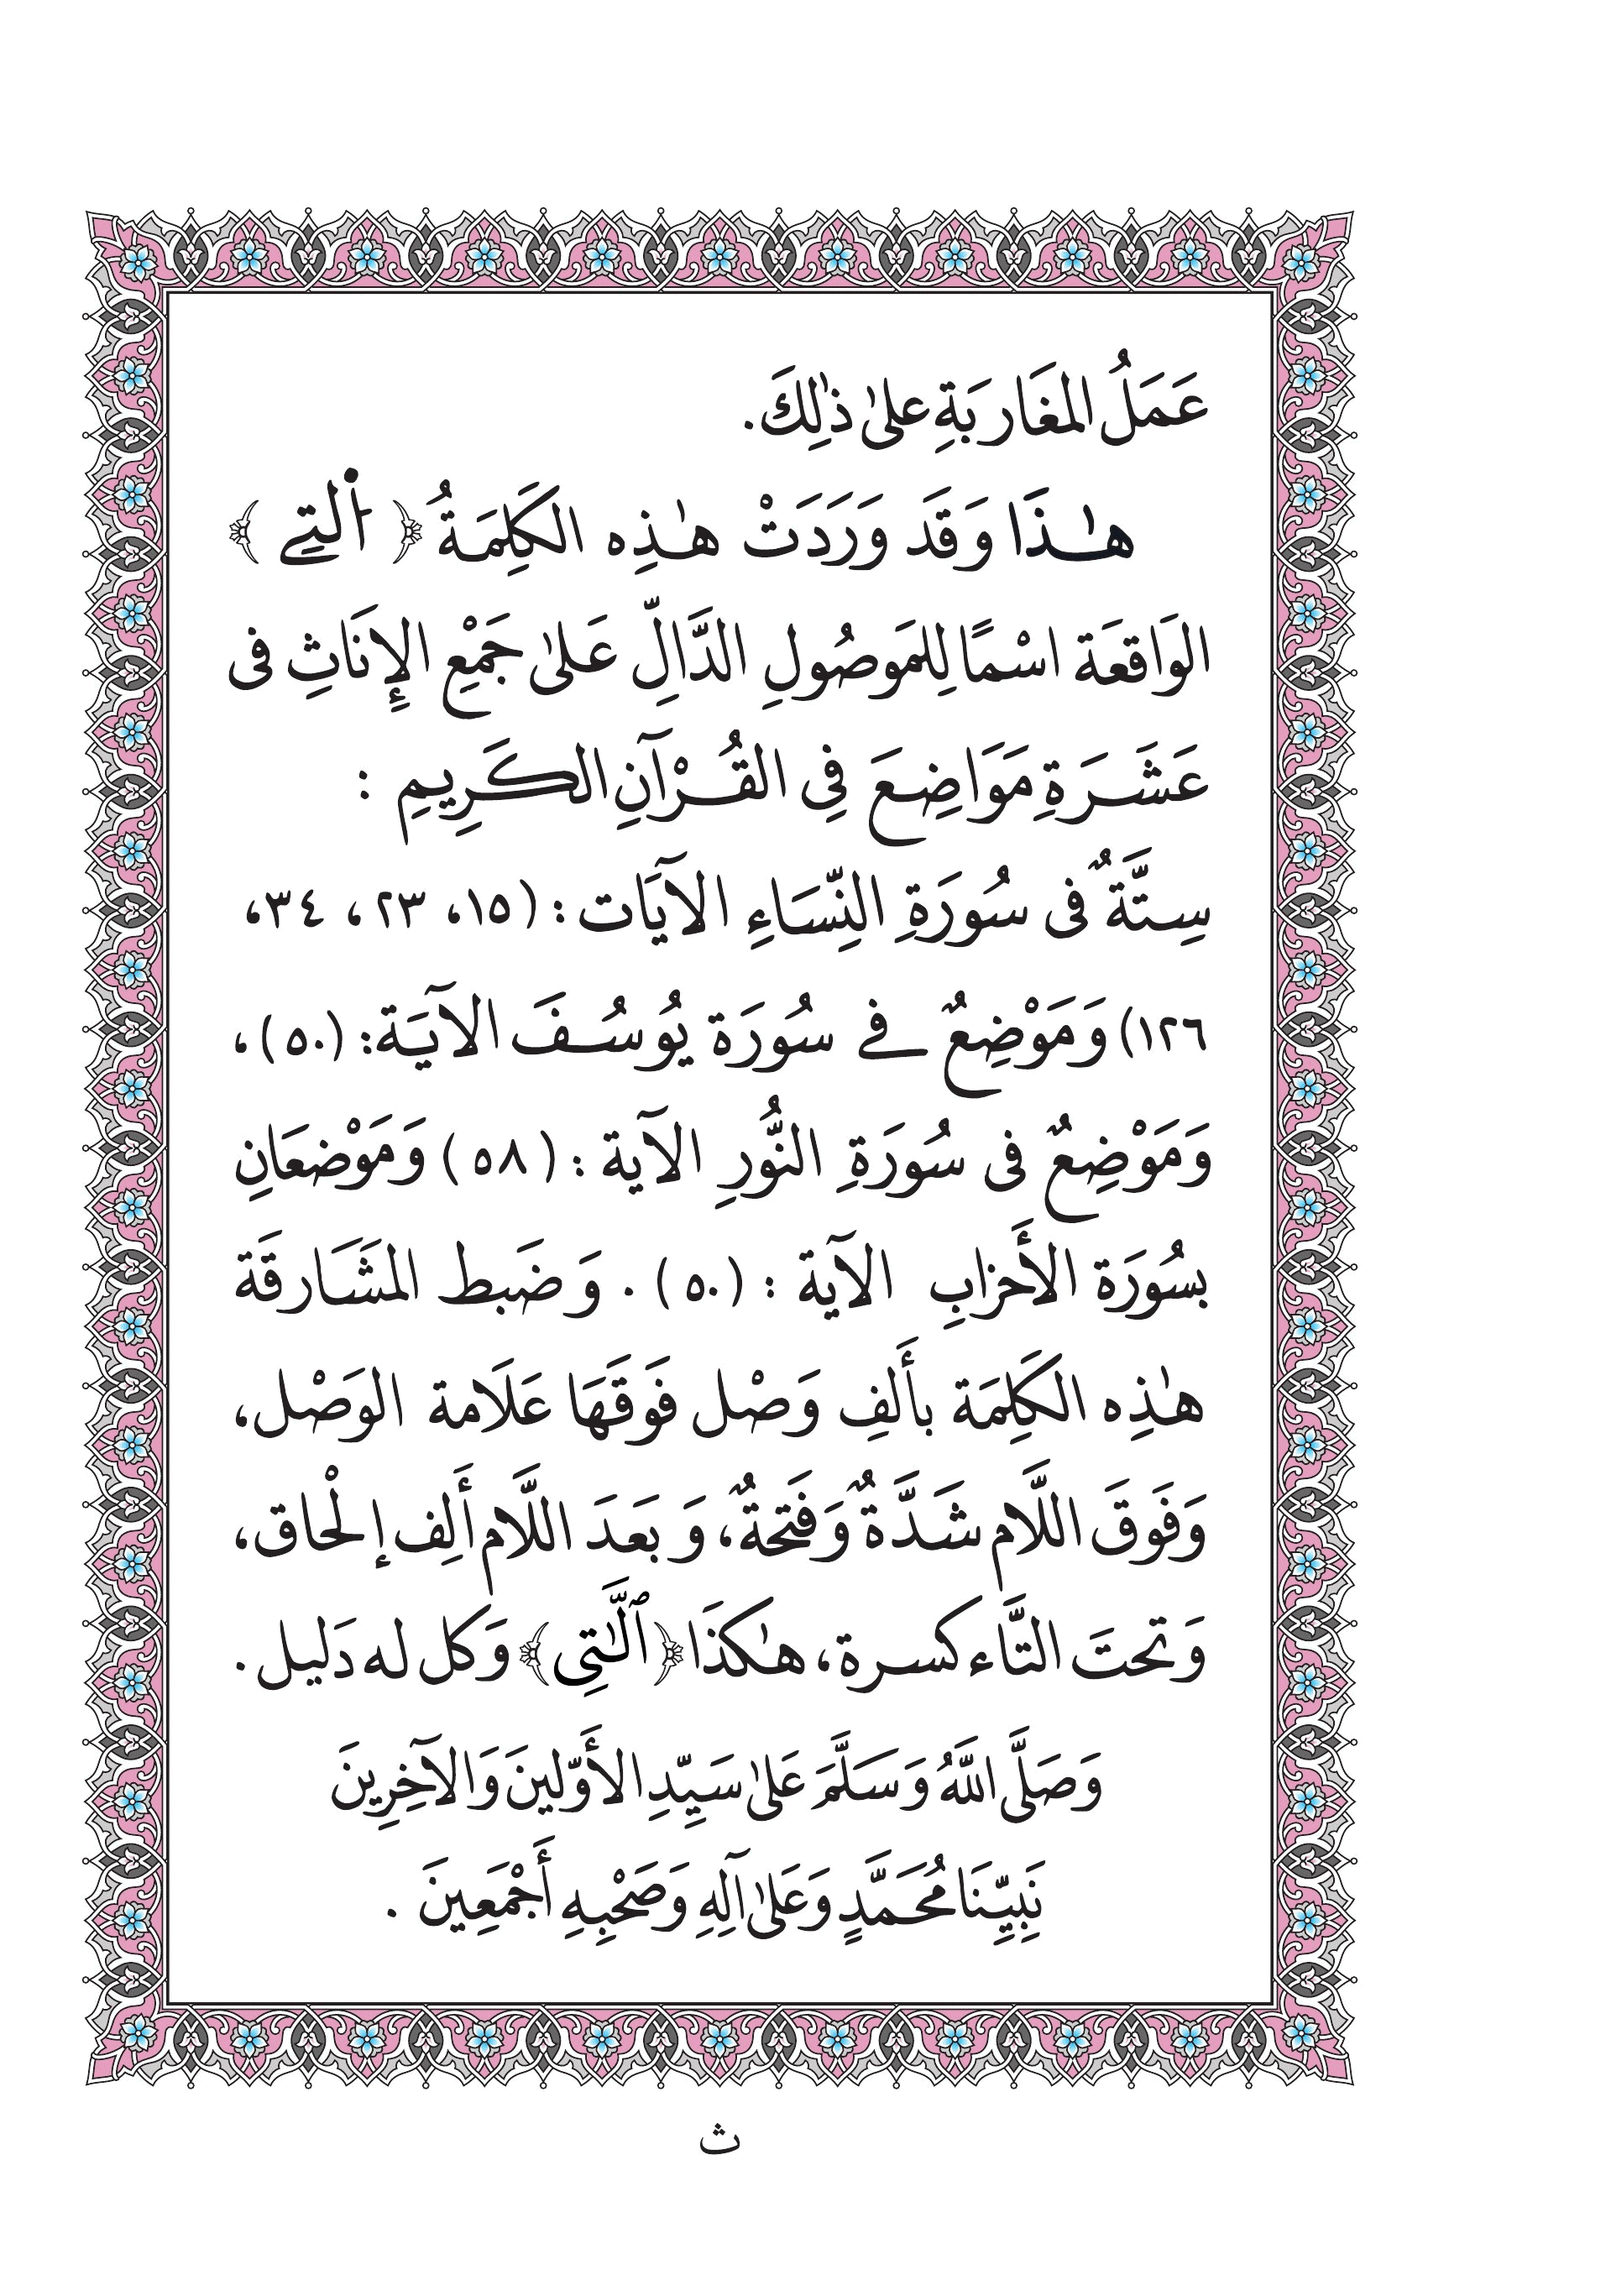 عَمَلُ المغَاربَةِ علىٰ ذٰلِكَ.
هـٰذَا وَقَد وَرَدَتْ هـٰذِه الكَلِمَةُ ﴿ اُلتِے ﴾
الوَاقعَة اسْمًا لِلمَوصُولِ الدَّالِّ عَلىٰ جَمْعِ الإِنَاثِ فى
عَشَرَةِ مَوَاضِعَ فِى القُرْآنِ الكَرِيمِ :
سِتَّةٌ فى سُورَةِ النِّسَاءِ الآيَات : (١٥، ٢٣ ، ٣٤،
١٢٦) وَمَوْضِعٌ فے سُورَة يُوسُفَ الآيَة: (٥٠) ،
وَمَوْضِعٌ فى سُورَةِ النُّورِ الآية : (٥٨) وَمَوْضعَانِ
بسُورَة الأَحزابِ الآية : (٥٠) . وَضَبط المشَارقَة
هـٰذِه الكَلِمَة بأَلفِ وَصْل فَوقَهَا عَلَامة الوَصْل،
وَفَوقَ اللَّام شَدَّةٌ وَفَتحةٌ، وَبَعدَ اللَّام أَلِف إلْحاق،
وَتحتَ التَّاء كسرة، هـٰكذَا ﴿ٱلَّـٰتِى﴾ وَكل له دَليل.
وَصَلَّى اللَّهُ وَسَلَّمَ عَلىٰ سَيِّدِ الأَوّلينَ وَالآخِرِينَ
نَبِيِّنَا مُحَمَّدٍ وَعَلىٰ آلِهِ وَصَحْبِهِ أَجْمَعِينَ .
ث